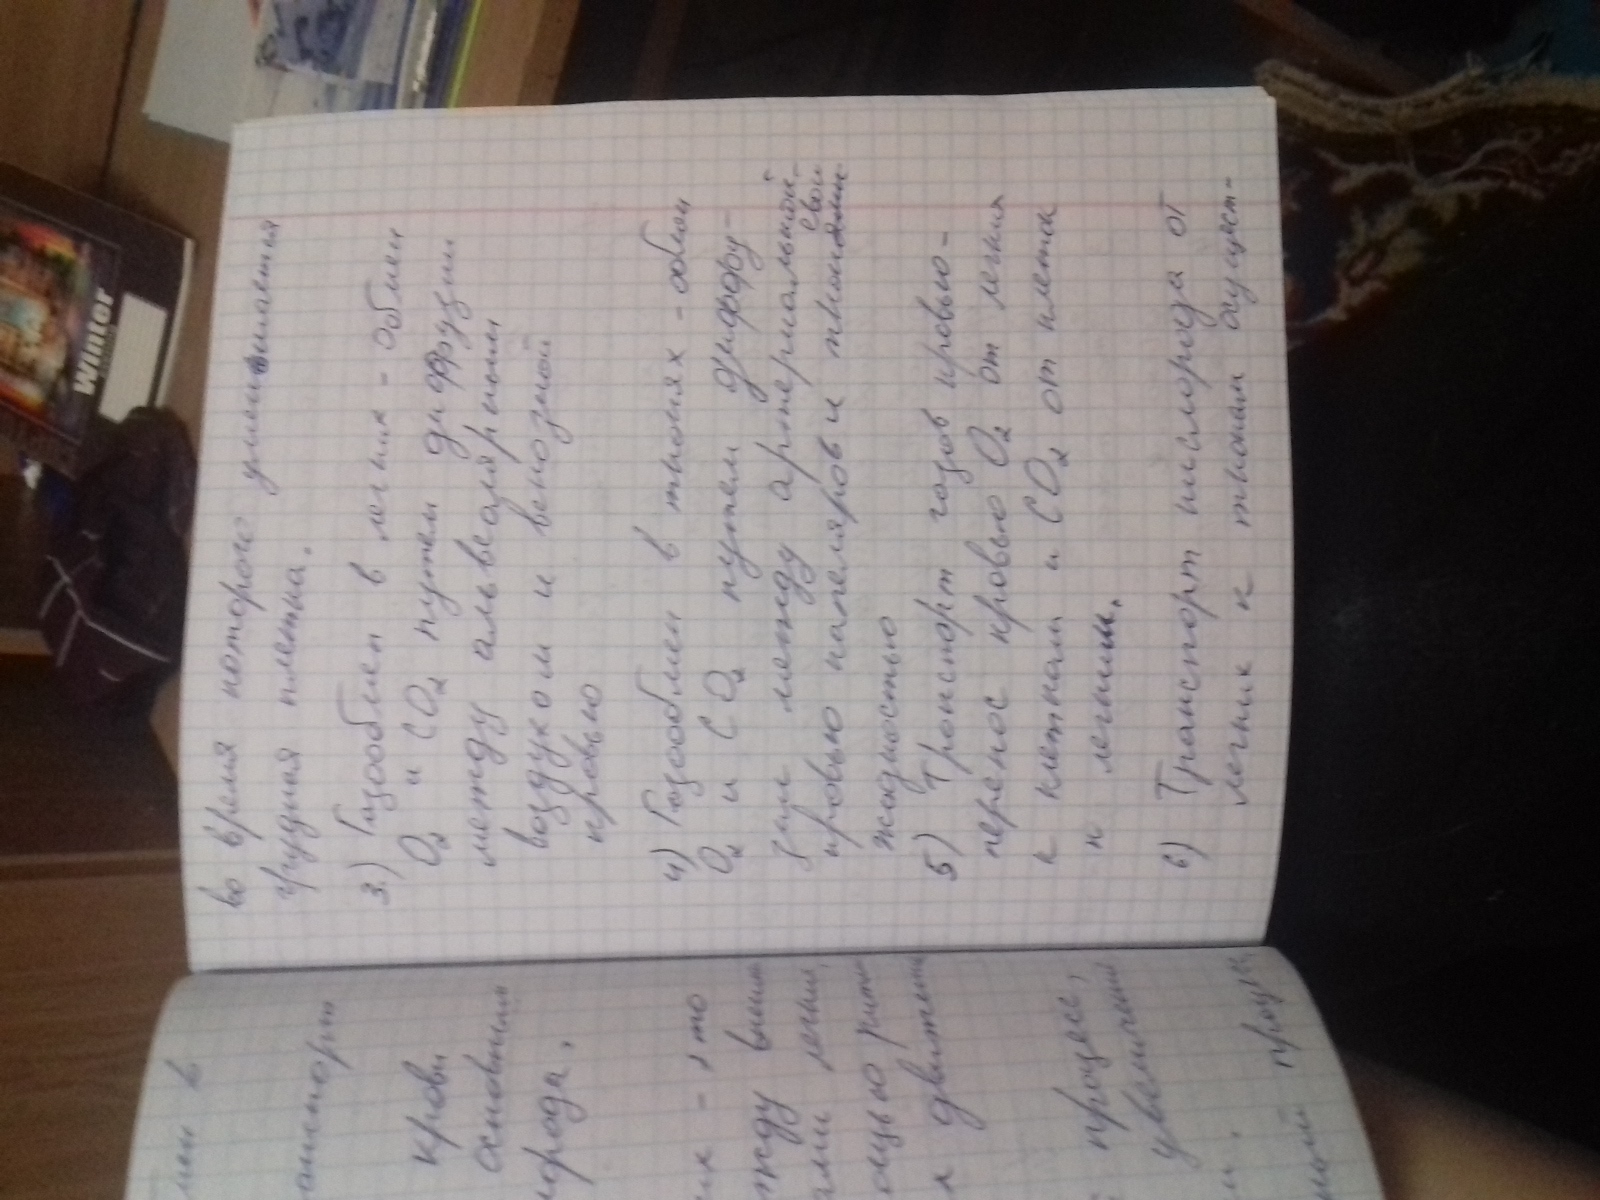 во время которого уменьшается
грудная клетка.
3.) Газообмен в легких - обмен
O₂ и CO₂ путем диффузии
между альвеалярным
воздухом и венозной
кровью
4) Газообмен в тканях - обмен
O₂ и CO₂ путем диффу-
зии между артериальной
кровью капеляров и тканевой
жидкостью
5) Транспорт газов кровью -
перенос кровью O₂ от легких
к клеткам и CO₂ от клеток
к легким.
6) Транспорт кислорода от
легких к тканям осущест-
мен в
анспорт
крови
основным
лорода.
их - это
жду внешн
ами легким
ощью ритм
х движени
процесс,
увеличени
и.
ный процесс
Winter